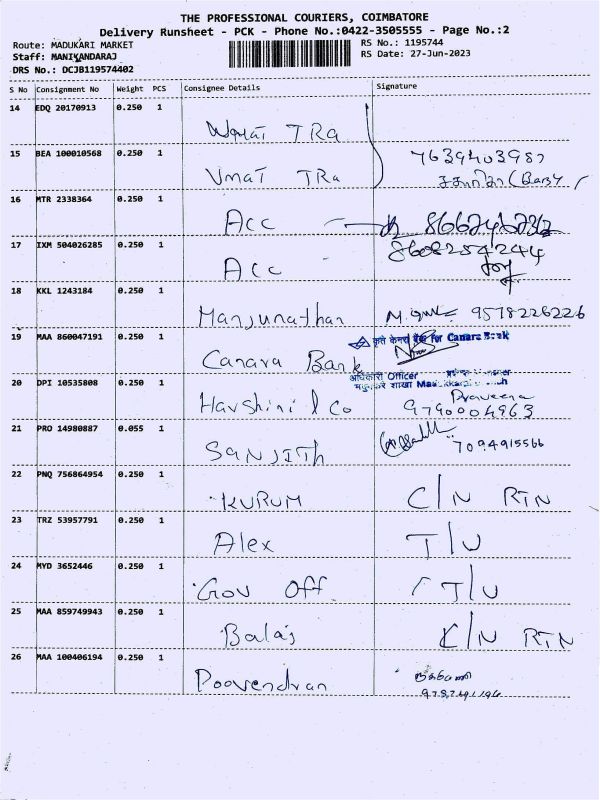 THE PROFESSIONAL COURIERS, COIMBATORE
Delivery Runsheet - PCK - Phone No.:0422-3505555 - Page No.:2
Route: MADUKARI MARKET
Staff: MANIKANDARAJ
DRS No.: DCJB119574402
RS No.: 1195744
RS Date: 27-Jun-2023
S No Consignment No Weight PCS Consignee Details Signature
14 EDQ 20170913 0.250 1
TRa
15 BEA 100010568 0.250 1
Umat TRa
(Baby
16 MTR 2338364 0.250 1
Acc
17 IXM 504026285 0.250 1
Acc 8608254244
18 KKL 1243184 0.250 1
Manjunathan 9578226226
19 MAA 860047191 0.250 1
कृते केनरा बैंक For Canara Bank
Canara Bank
20 DPI 10535808 0.250 1
अधिकारी Officer
शाखा
Praveena
Harshini & Co 9790004963
21 PRO 14980887 0.055 1
SANJITH 7094915566
22 PNQ 756864954 0.250 1
KURUM C/N RTN
23 TRZ 53957791 0.250 1
Alex T/U
24 MYD 3652446 0.250 1
Gov Off T/U
25 MAA 859749943 0.250 1
Balaj C/N RTN
26 MAA 100406194 0.250 1
Poovendran